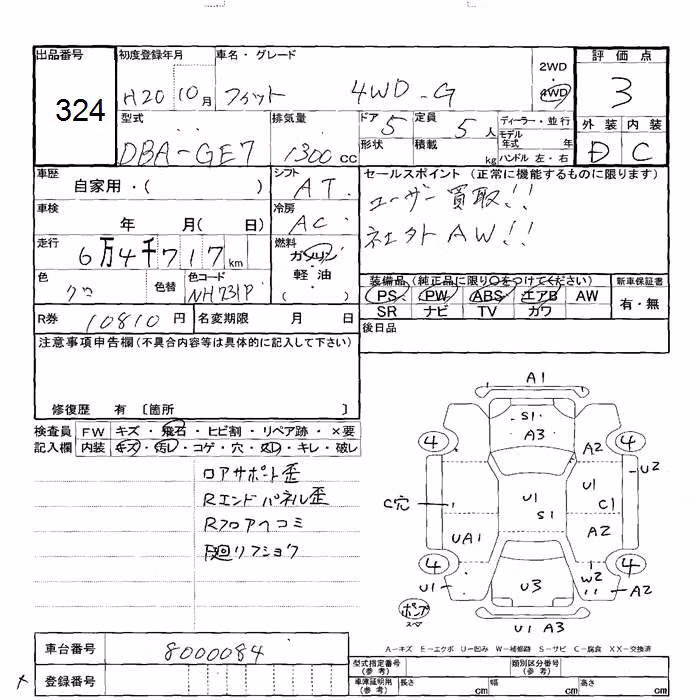 出品番号 324
初度登録年月 H20 10月
車名・グレード フィット 4WD-G
2WD
4WD
評価点 3
外装 内装
D C
型式 DBA-GE7
排気量 1300cc
ドア 5
定員 5人
形状
積載 kg
ディーラー・並行
モデル年式 年
ハンドル 左・右
車歴 自家用・( )
シフト AT
車検 年 月( 日)
冷房 AC
走行 6万4千717km
燃料 ガソリン
軽・油
( )
色 クロ
色替
色コード NH731P
セールスポイント (正常に機能するものに限ります)
ユーザー買取!!
社外AW!!
装備品(純正品に限り○をつけてください)
新車保証書
PS PW ABS エアB AW
SR ナビ TV カワ
有・無
R券 10810円
名変期限 月 日
後日品
注意事項申告欄(不具合内容等は具体的に記入して下さい)
修復歴 有 〔箇所 〕
検査員 FW キズ・飛石・ヒビ割・リペア跡・×要
記入欄 内装 キズ・汚レ・コゲ・穴・凹・キレ・破レ
ロアサポート歪
Rエンドパネル歪
Rフロアヘコミ
廻リフショウ
A1
S1
A3
4 4
A2
U2
U1
U1
C穴
C1
S1
UA1
A2
4 4
U1
U3
W2
A2
U1 A3
A-キズ E-エクボ U-凹み W-補修跡 S-サビ C-腐食 XX-交換済
車台番号 8000084
登録番号
型式指定番号(参考)
類別区分番号(参考)
車庫証明用(参考) 長さ cm 幅 cm 高さ cm